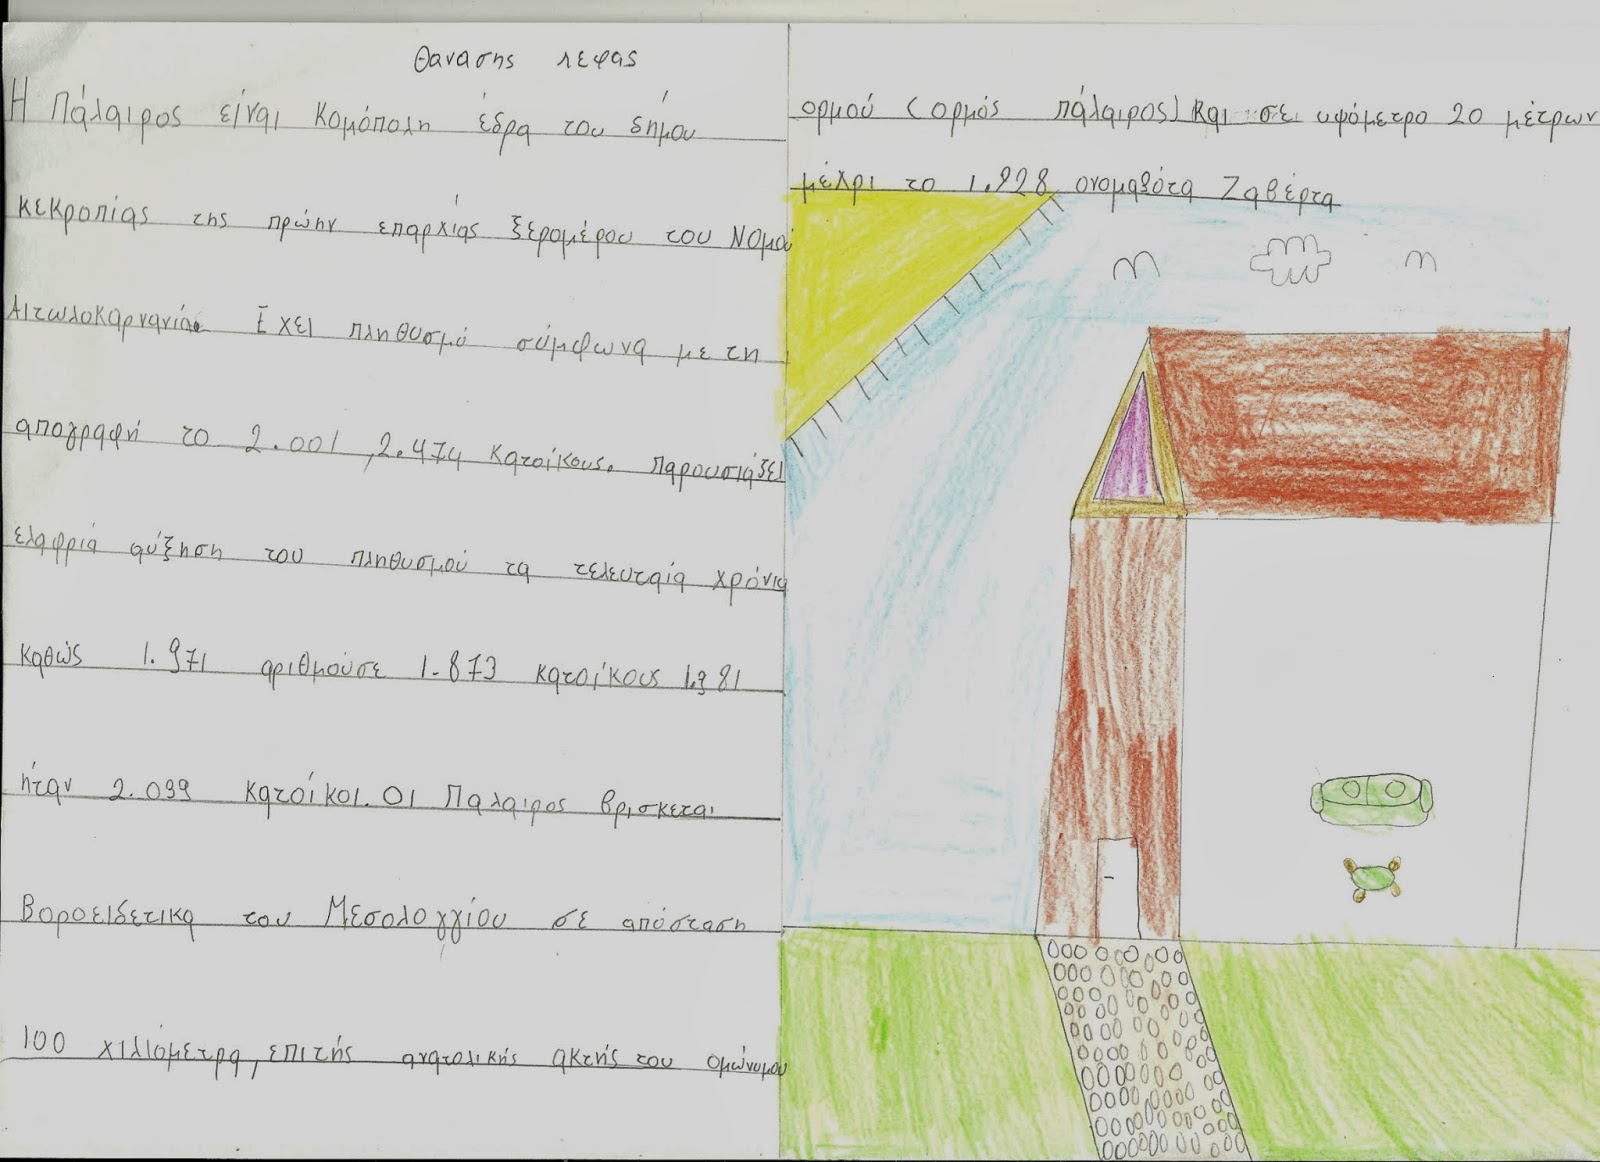 Θανασης Λεφας
Η Πάλαιρος είναι Κομόπολη έδρα του δήμου
Κεκροπίας της πρώην επαρχίας Ξερομέρου του Νομού
Αιτωλοκαρνανίας Έχει πληθυσμό σύμφωνα με τη
απογραφή το 2.001 ,2.474 κατοίκους. Παρουσιάζει
ελαφριά αύξηση του πληθυσμού τα τελευταία χρόνια
καθώς 1.971 αριθμούσε 1.873 κατοίκους 1.981
ήταν 2.099 κατοίκοι. Οι Παλαιρος βρισκεται
Βοροειδετικα του Μεσολογγίου σε απόσταση
100 χιλιόμετρα, επιτής ανατολικής ακτής του ομώνυμου
ορμού (ορμός πάλαιρος) και σε υψόμετρο 20 μέτρων
μέχρι το 1.928 ονομαζότα Ζαβέρτα